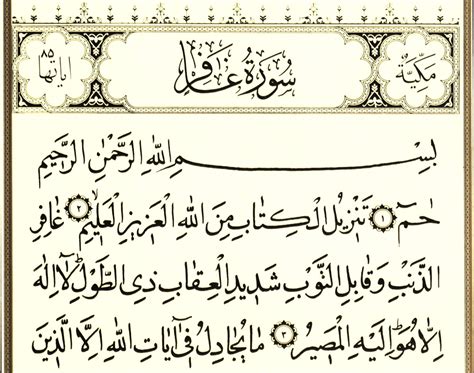 مَكِّيَّةٌ سُورَةُ غَافِرٍ اٰيَاتُهَا ٨٥
بِسْمِ اللّٰهِ الرَّحْمٰنِ الرَّحِيمِ
حٰمٓ ۝١ تَنْزِيلُ الْكِتَابِ مِنَ اللّٰهِ الْعَزِيزِ الْعَلِيمِ ۝٢ غَافِرِ
الذَّنْبِ وَقَابِلِ التَّوْبِ شَدِيدِ الْعِقَابِ ذِي الطَّوْلِ لَٓا اِلٰهَ
اِلَّا هُوَ اِلَيْهِ الْمَصِيرُ ۝٣ مَا يُجَادِلُ فٓي اٰيَاتِ اللّٰهِ اِلَّا الَّذِينَ